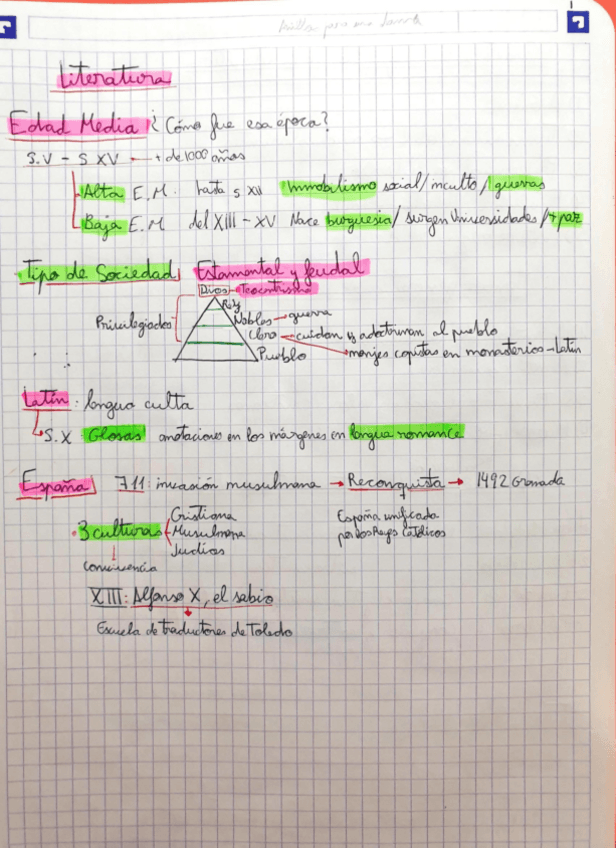 Literatura
Edad Media ¿Cómo fue esa época?
S.V - S XV → + de 1000 años
Alta E.M. hasta s XII Inmobilismo social/inculto/guerras
Baja E.M del XIII - XV Nace burguesía/surgen Universidades/+ paz
Tipo de Sociedad Estamental y feudal
Dios - Teocentrismo
Rey
Privilegiados Nobles → guerra
Clero → cuidan y adoctrinan al pueblo
→ monjes copistas en monasterios - Latín
Pueblo
Latín: lengua culta
S.X Glosas anotaciones en los márgenes en lengua romance
España 711: invasión musulmana → Reconquista → 1492 Granada
España unificada
por los Reyes Católicos
3 culturas Cristiana
Musulmana
Judías
convivencia
XIII: Alfonso X, el sabio
Escuela de traductores de Toledo